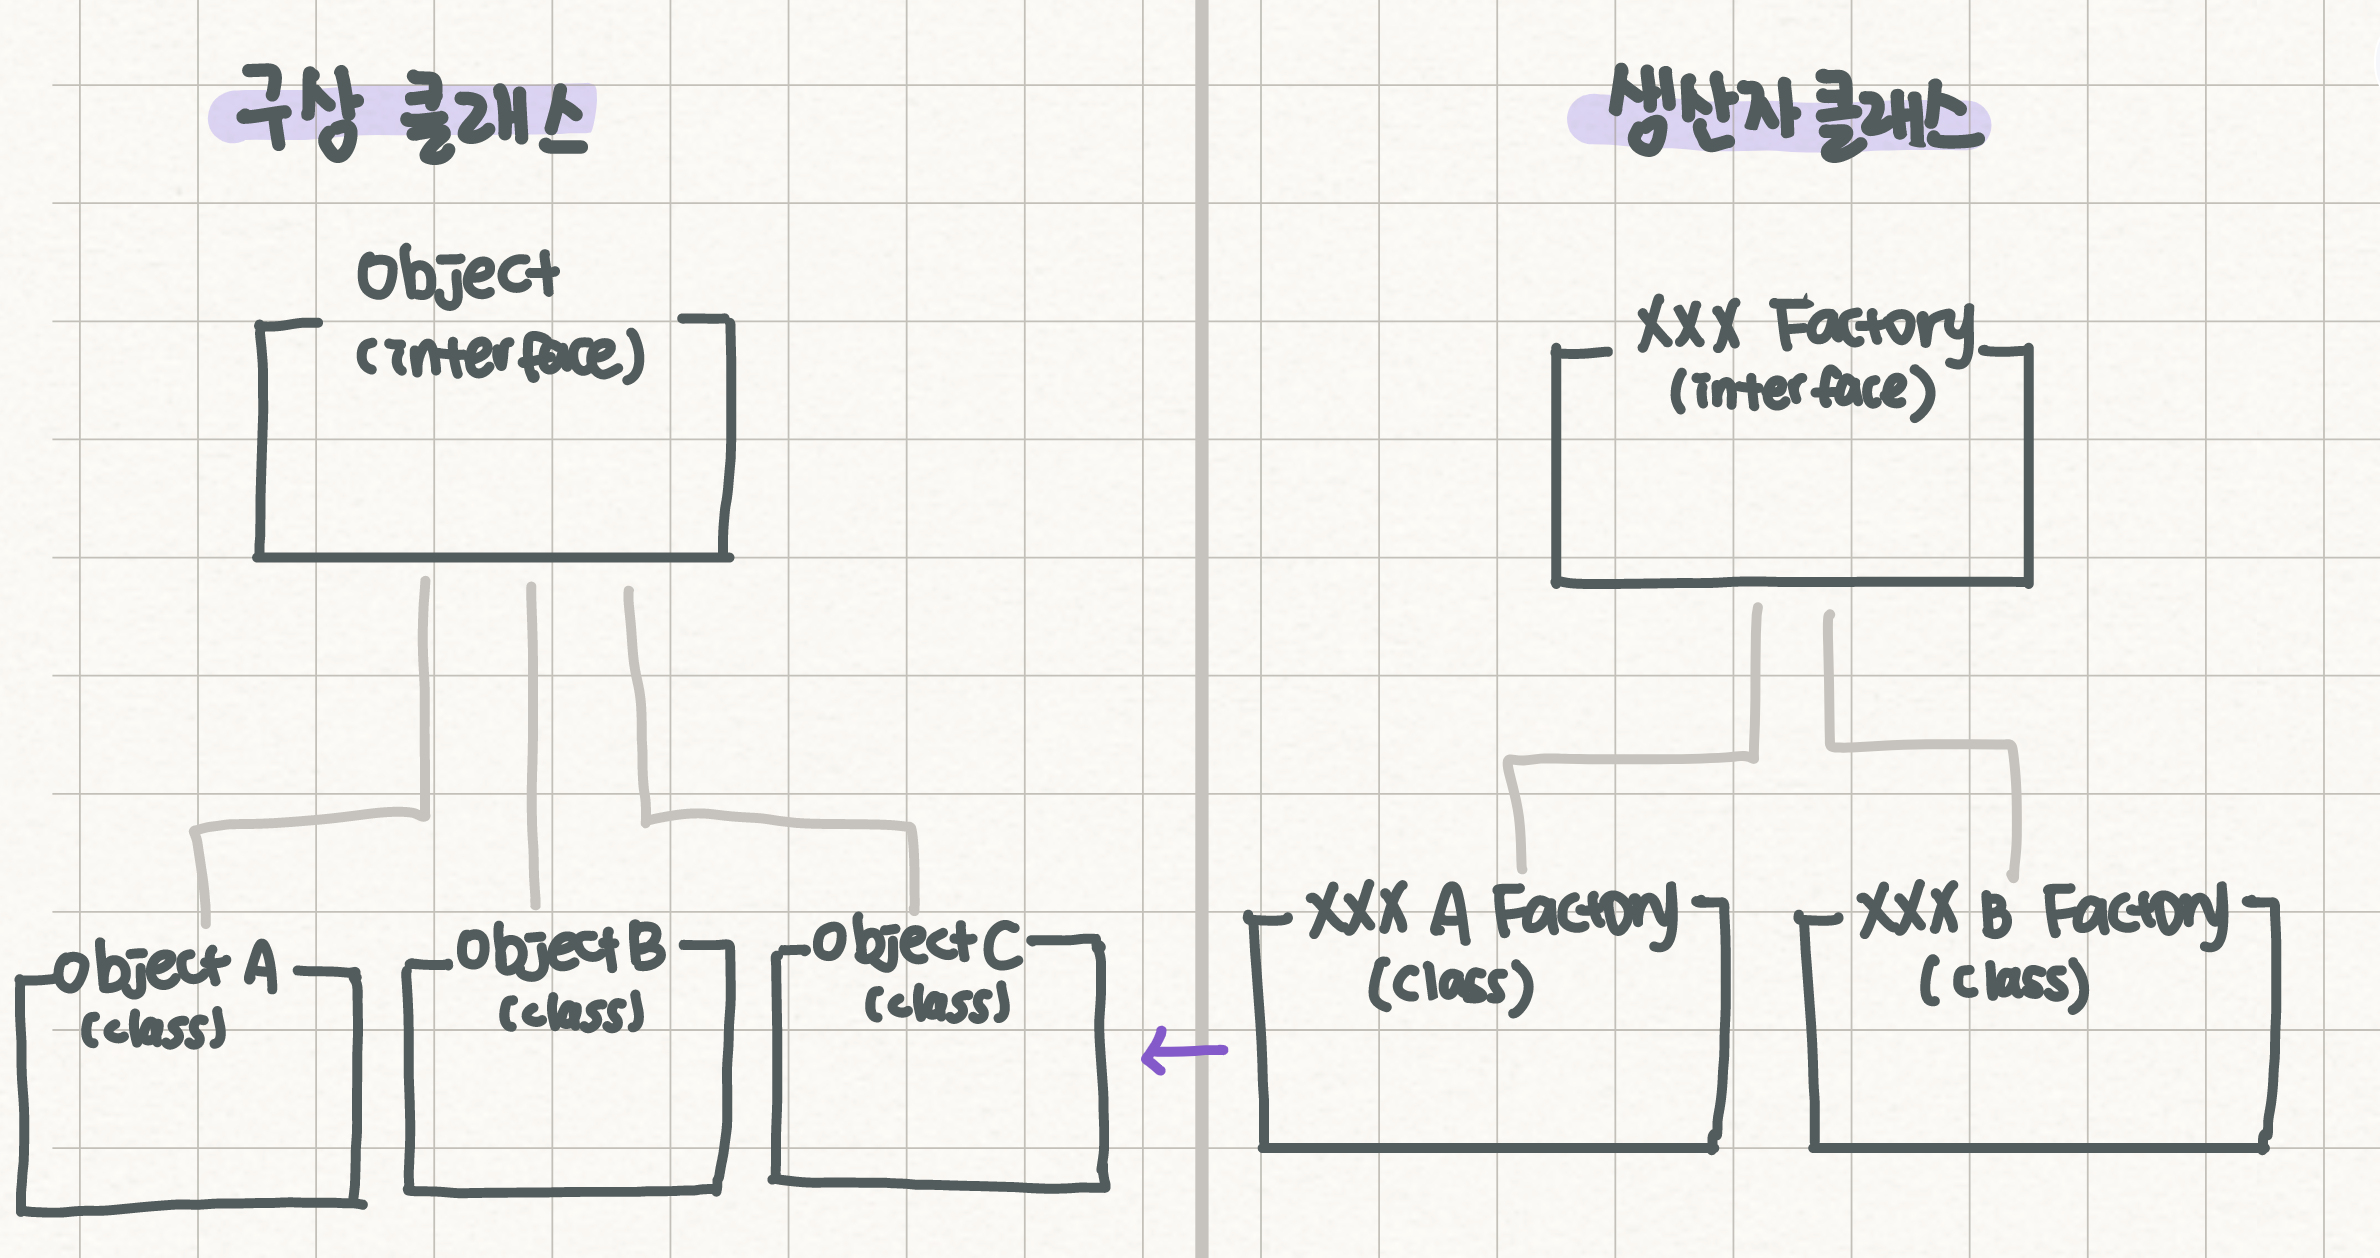 구상 클래스
Object
(interface)
Object A
(class)
Object B
(class)
Object C
(class)
생산자 클래스
XXX Factory
(interface)
XXX A Factory
(class)
XXX B Factory
(class)